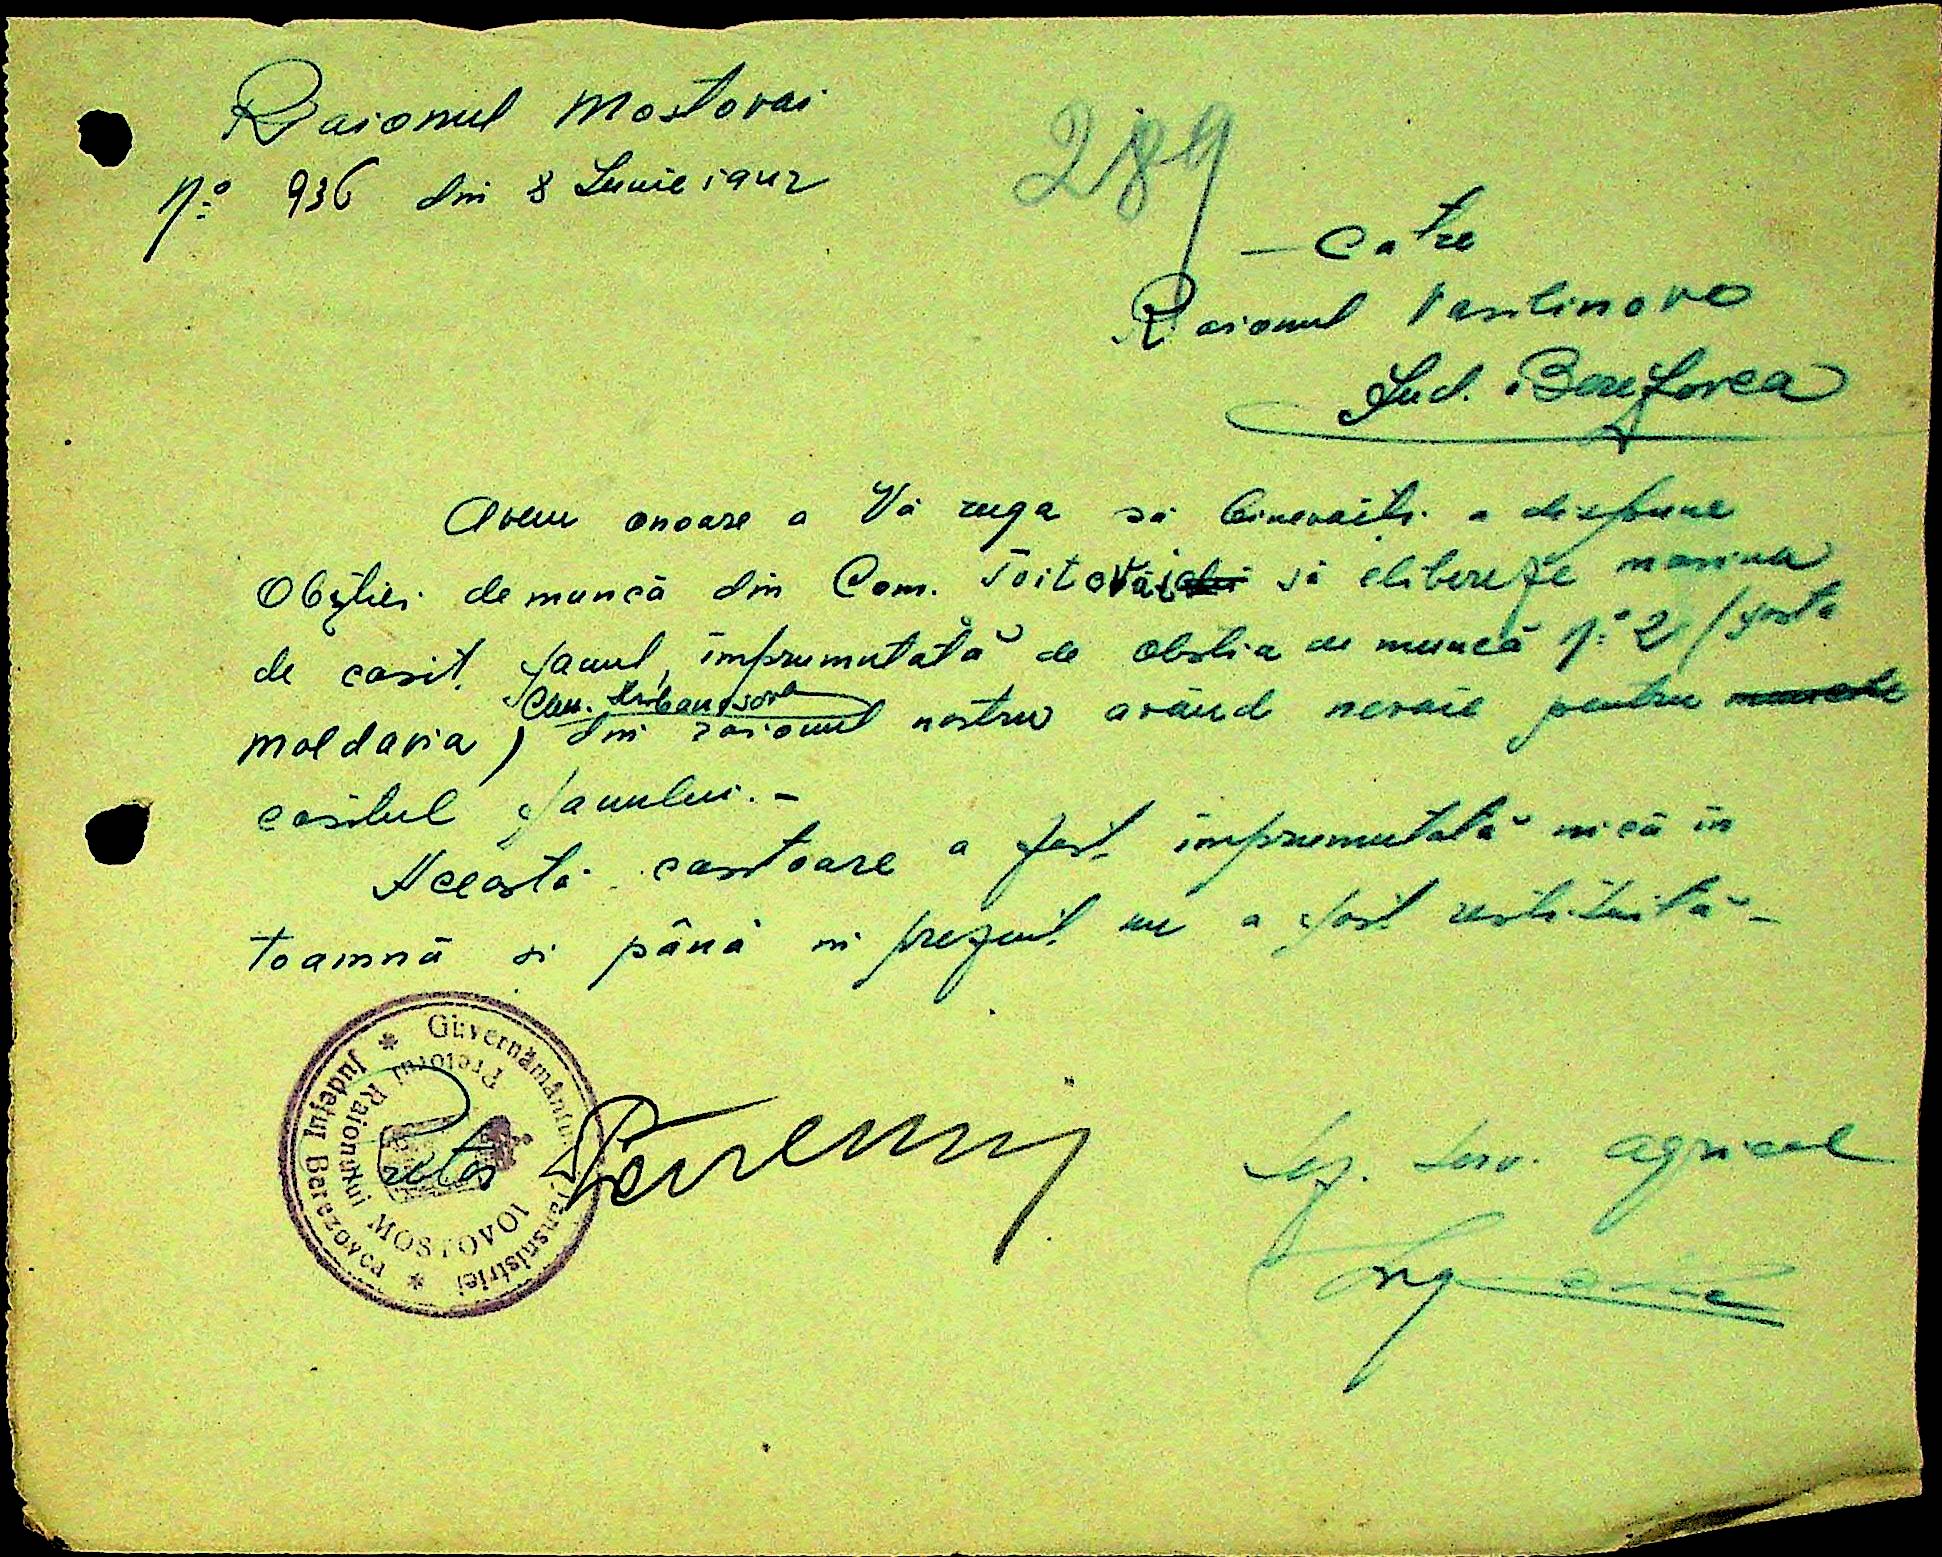 Raionul Mostovai
No 936 din 8 Iunie 1942
289
— Catre
Raionul Vasilinovo
Jud. Berezovca
Avem onoare a Vă ruga să binevoiți a dispune
Obștiei de muncă din Com. să elibereze masina
de cosit fanul, împrumutată de obstia de muncă No 2 /fosta
Com.
Moldavia) din raionul nostru având nevoie pentru
cositul fanului. —
Această cositoare a fost împrumutată încă în
toamnă si până in prezent nu a fost restituită —
Guvernământul Transnistriei
Județul Berezovca
Pretorul Raionului MOSTOVOI
Pretor
Șef. Serv. agricol
Ing